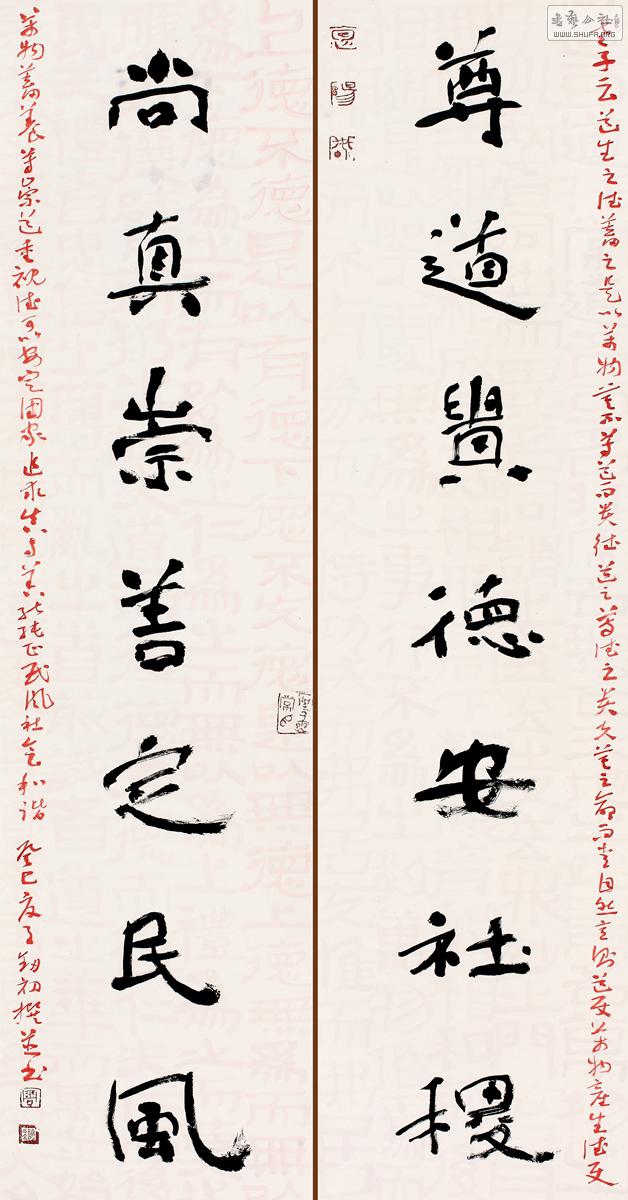 書藝公社
WWW.SHUFA.ORG
老子云道生之德蓄之是以萬物莫不尊道而贵德道之尊德之贵夫莫之命而常自然言道使萬物產生德使
尊道貴德安社稷
尚真崇善定民風
萬物蓄養尊崇道重视德可以安定國家追求真与善能純正民風社會和谐 癸巳夏初撰並書